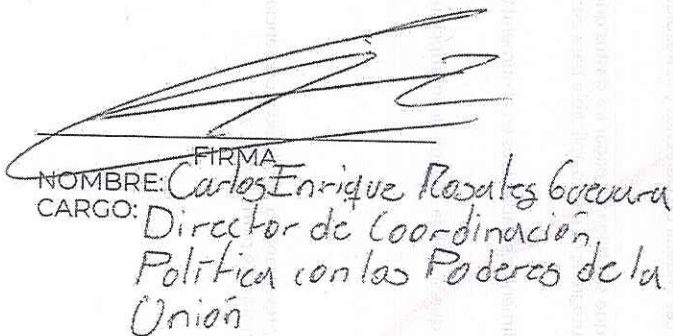 FIRMA
NOMBRE: Carlos Enrique Rosales Guevara
CARGO: Director de Coordinación
Política con los Poderes de la
Unión